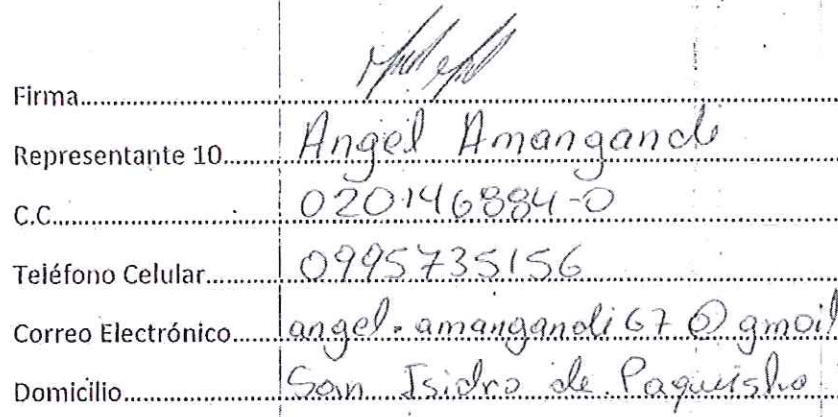 Firma
Representante 10 Angel Amangandi
C.C. 020146884-0
Teléfono Celular 0995735156
Correo Electrónico angel.amangandi67@gmail
Domicilio San Isidro de Paquisha